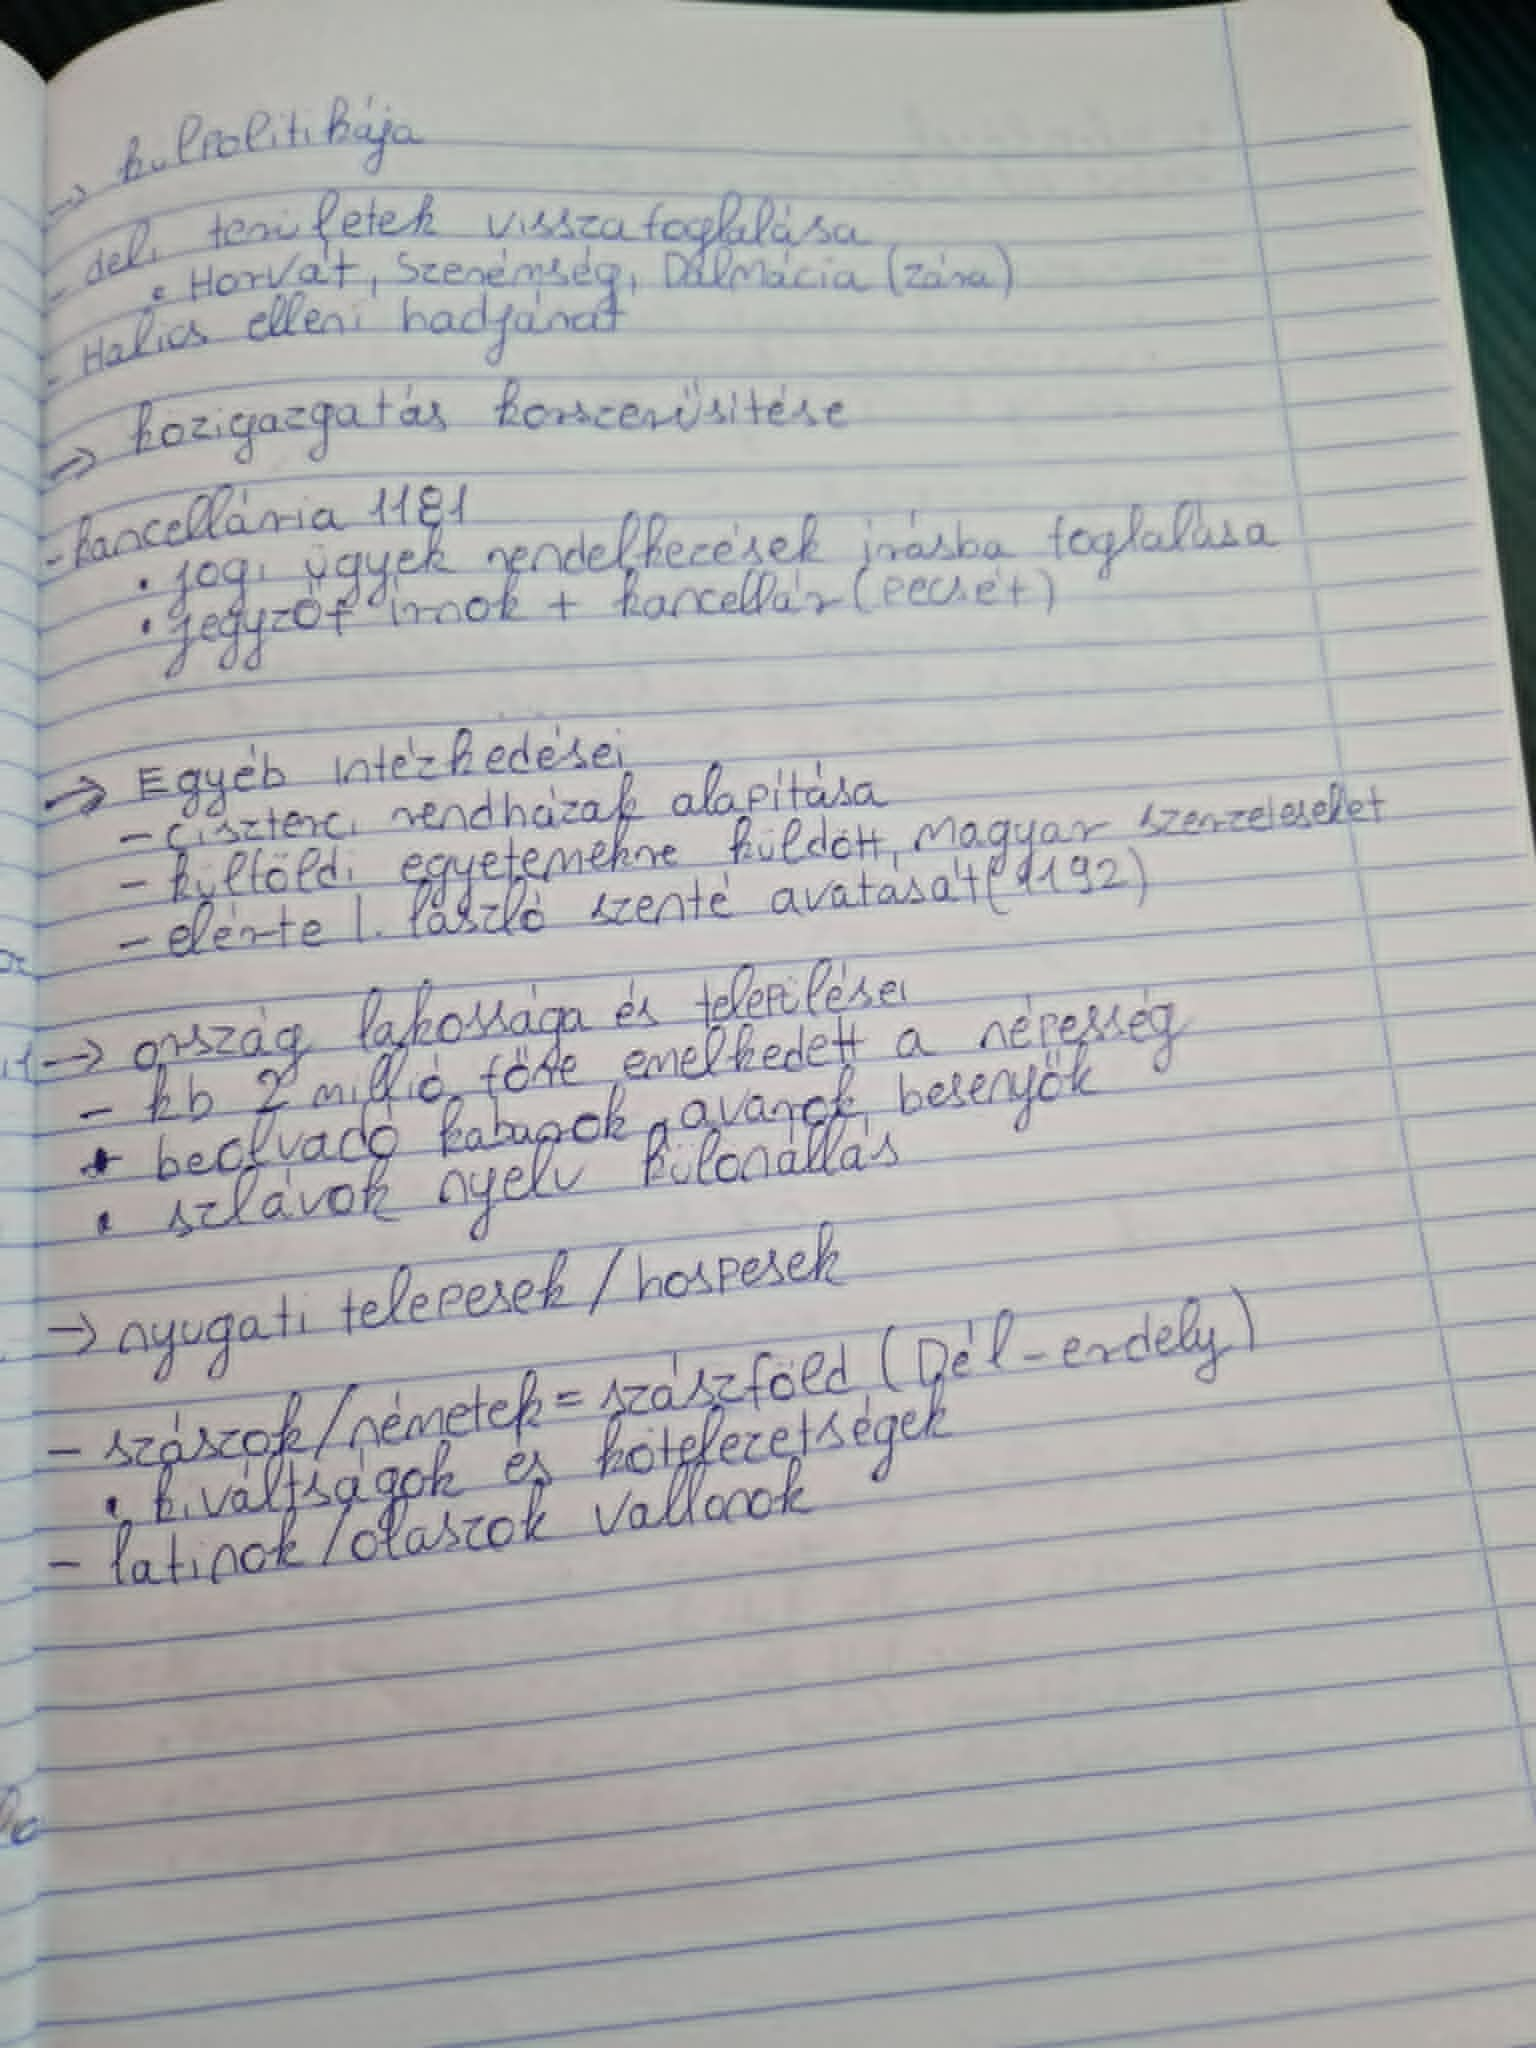 → kulpolitikája
- deli területek visszafoglalása
• Horvát, Szerémség, Dalmácia (Zára)
- Halics elleni hadjárat
→ közigazgatás korszerűsítése
- kancellária 1181
• jogi ügyek rendelkezések írásba foglalása
• jegyzőt írnok + kancellár (pecsét)
→ Egyéb intézkedései
- ciszterci rendházak alapítása
- külföldi egyetemekre küldött, magyar szerzeteseket
- elérte I. lászló szenté avatását (1192)
→ ország lakossága és települései
- kb 2 millió főre emelkedett a népesség
+ beolvadó kabarok, avarok, besenyők
• szlávok nyelv külonállás
→ nyugati telepesek / hospesek
- szászok/németek = szászföld (Dél-erdely)
• kiváltságok és kötelezetségek
- latinok / olaszok vallonok